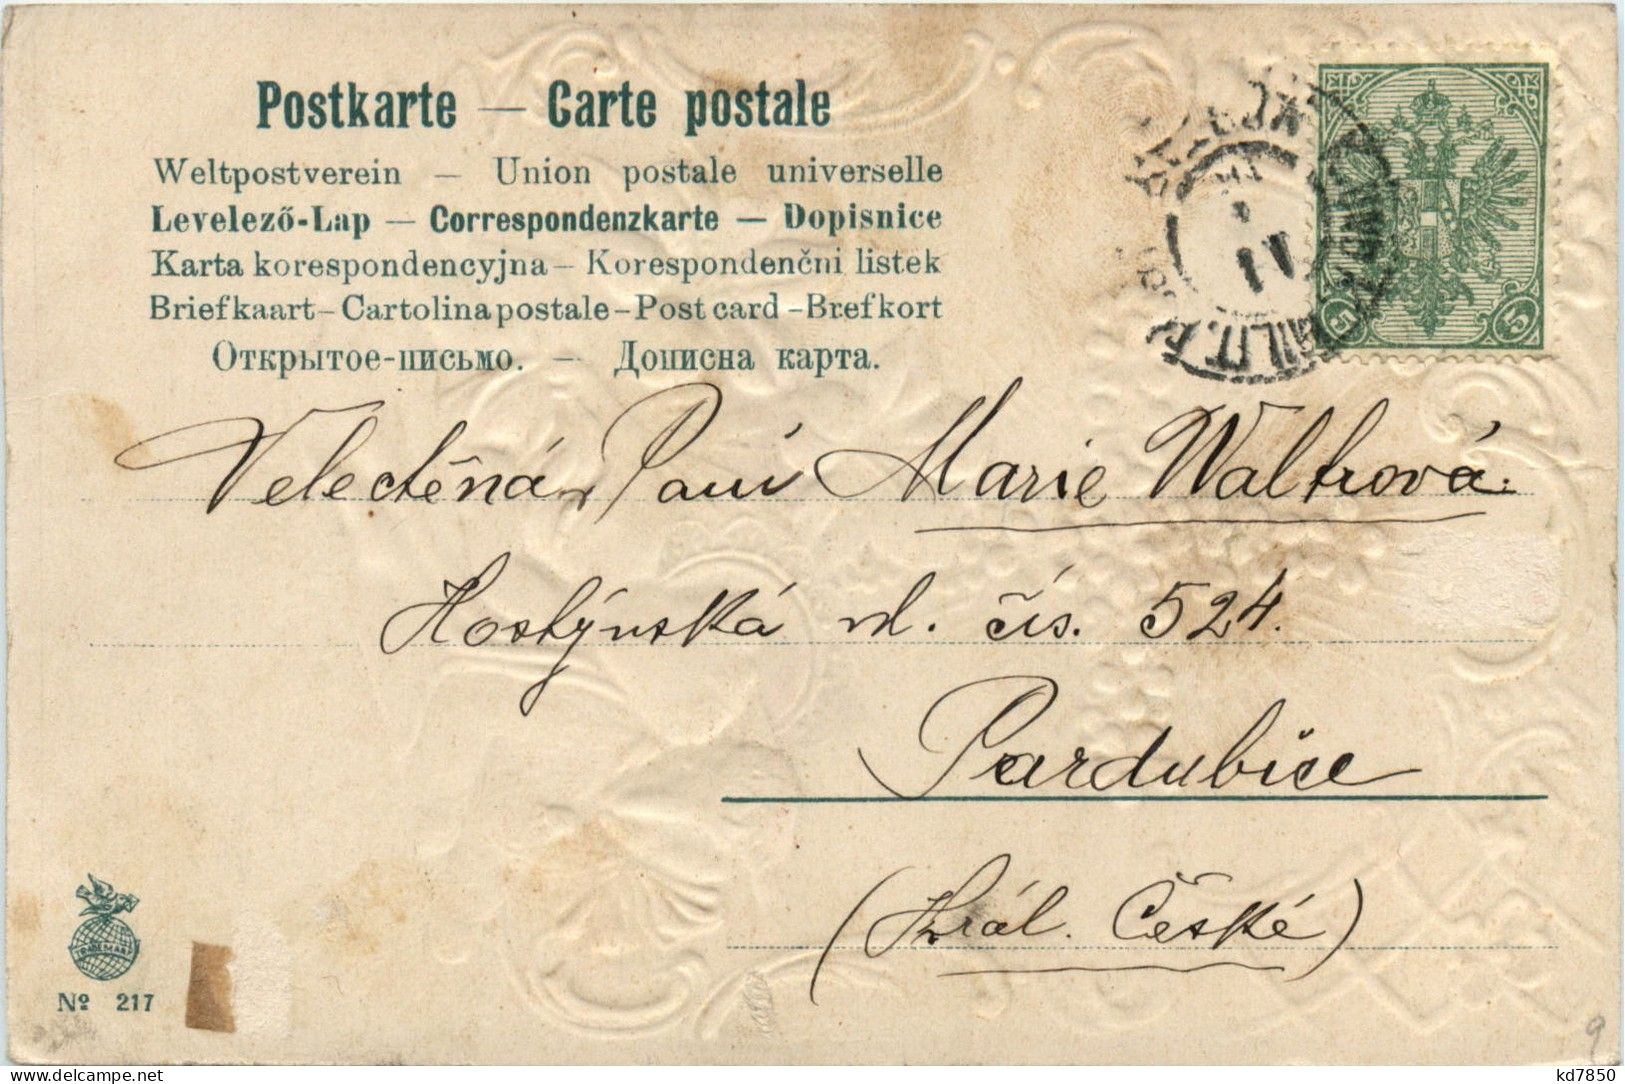 Postkarte — Carte postale
Weltpostverein — Union postale universelle
Levelező-Lap — Correspondenzkarte — Dopisnice
Karta korespondencyjna — Korespondenčni listek
Briefkaart — Cartolina postale — Post card — Brefkort
Открытое-письмо. — Дописна карта.
5 5
Velectěná Paní Marie Waltrová.
Hostýnská ul. čís. 524.
Pardubice
(Král. České)
TRADE MARK
Nº 217
9
kd7850